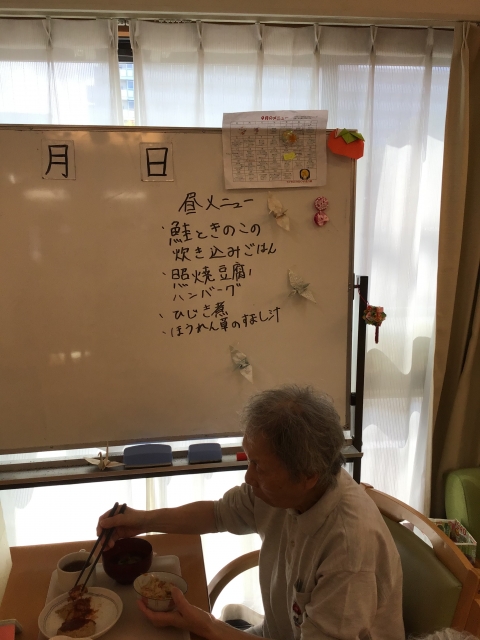 月 日
昼メニュー
・鮭ときのこの
炊き込みごはん
・照焼豆腐
ハンバーグ
・ひじき煮
・ほうれん草のすまし汁